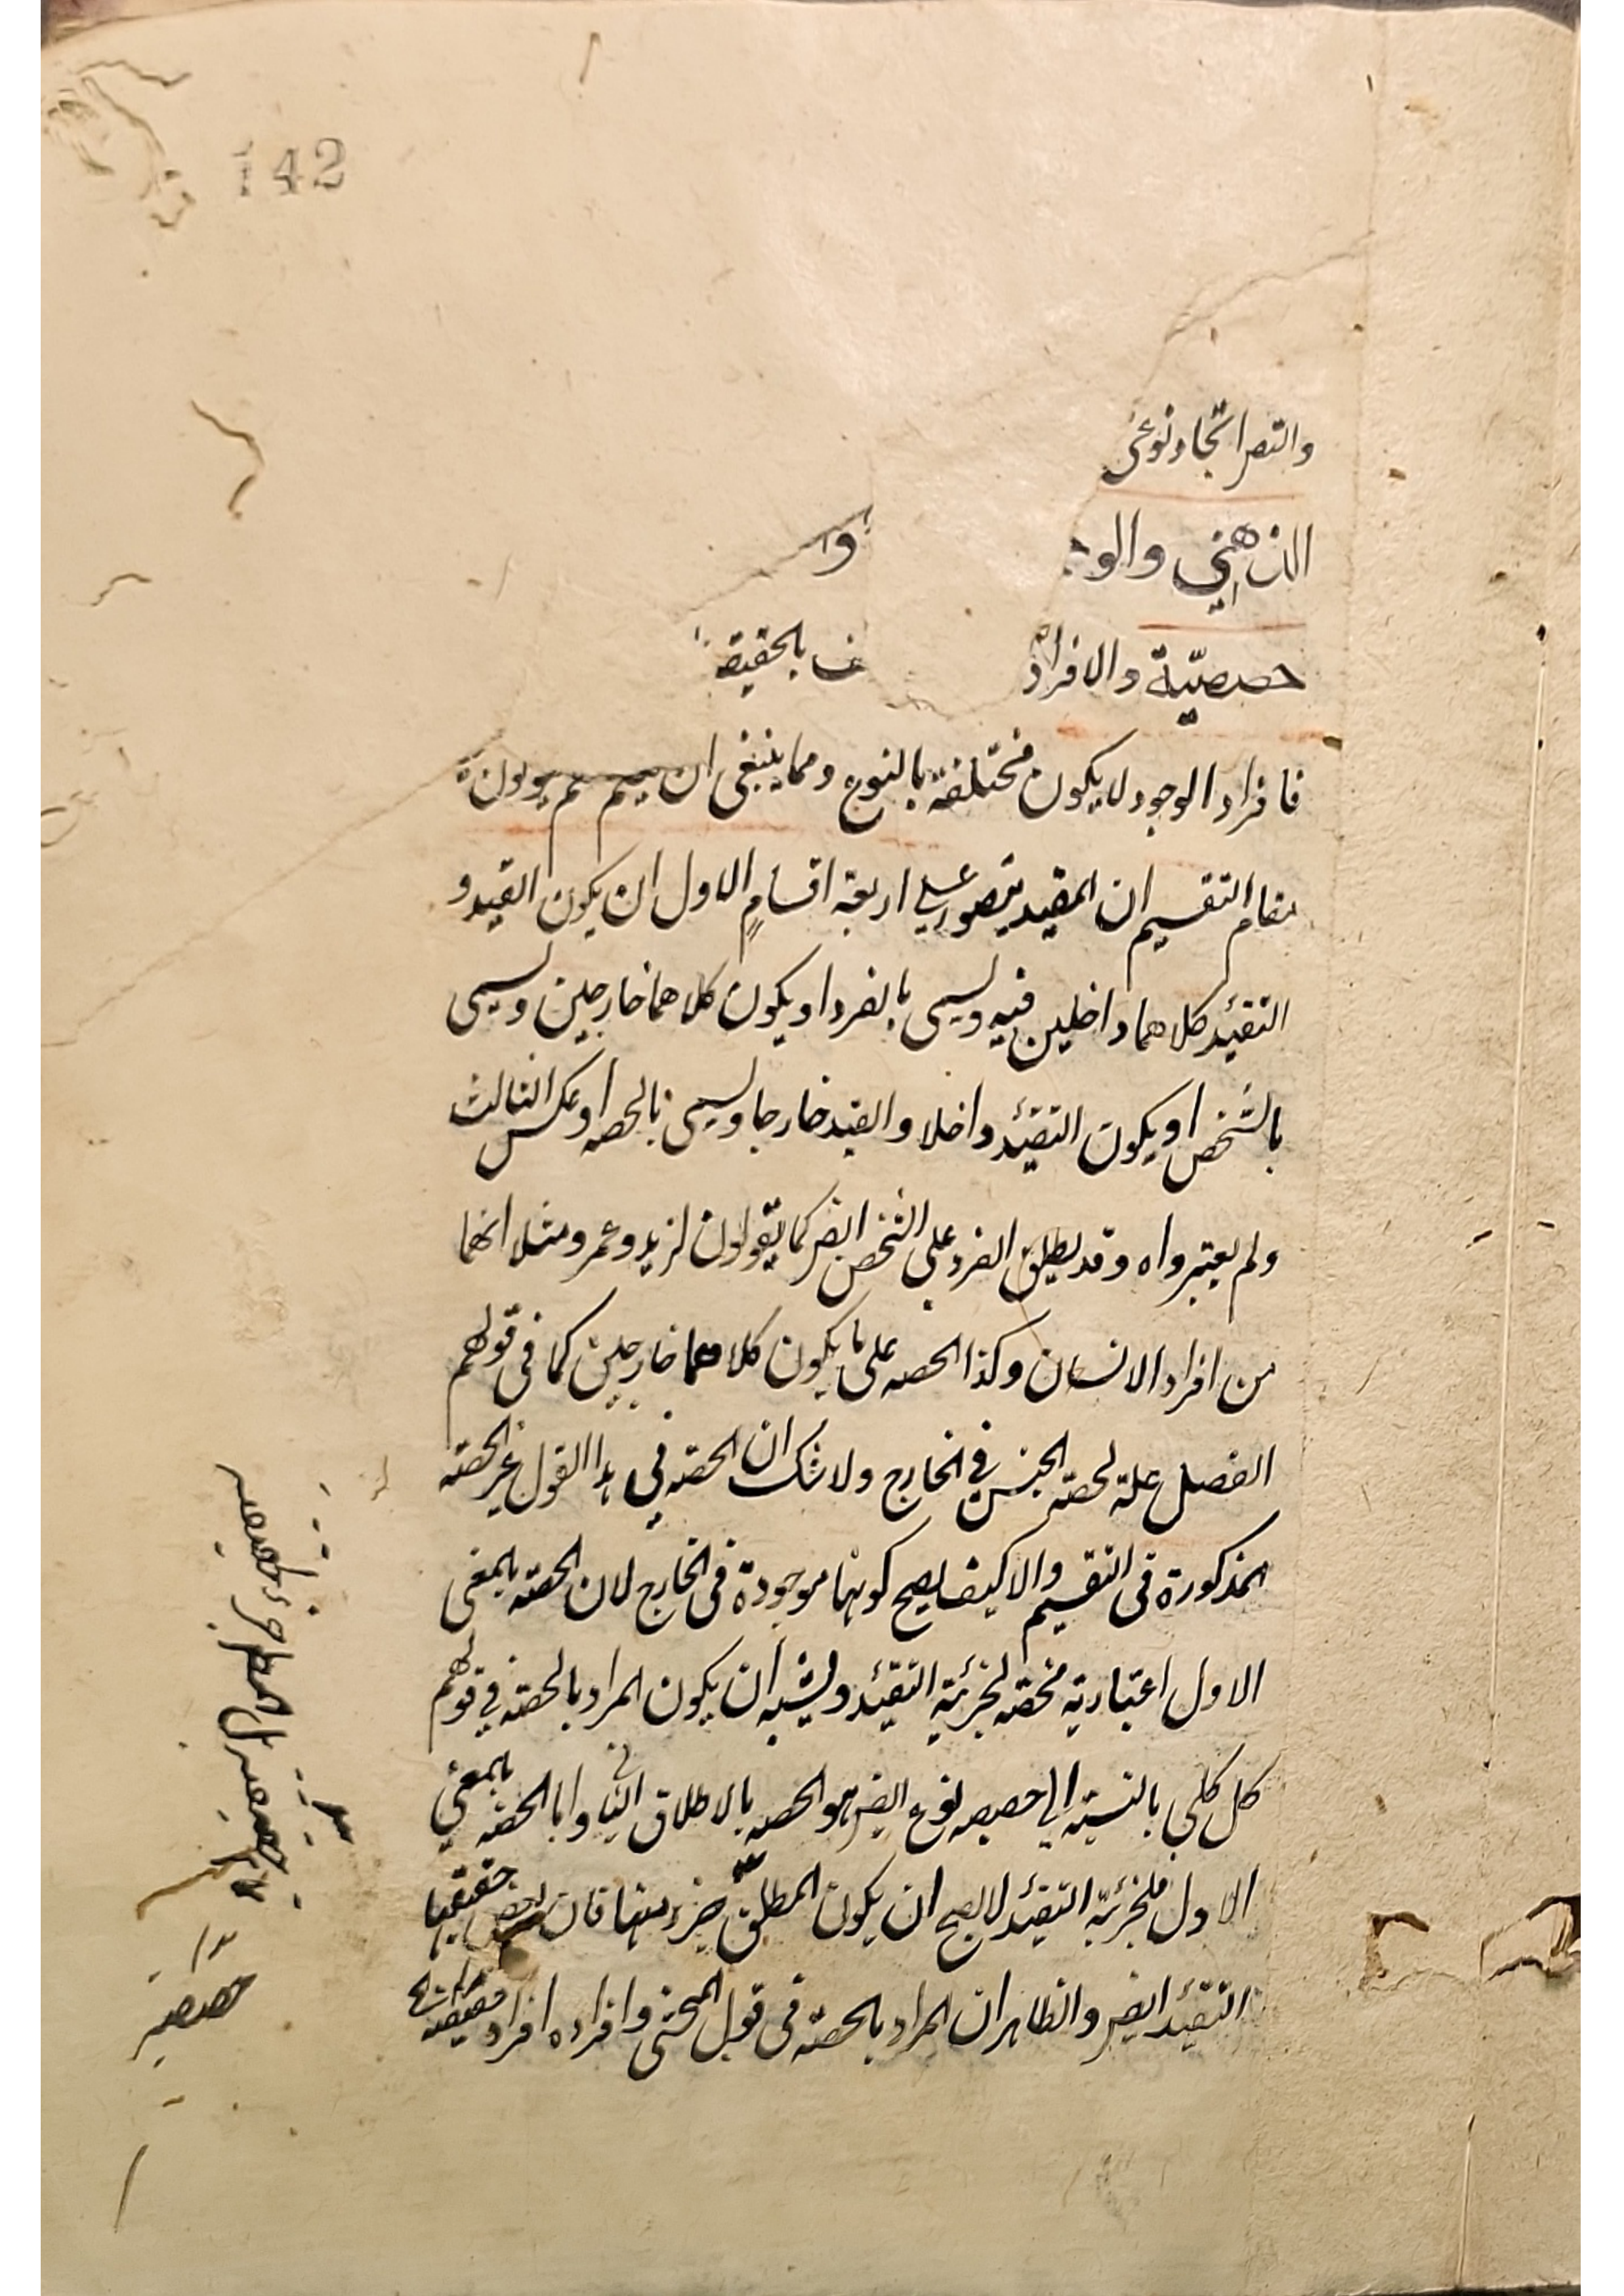 142
والتصر اتحاد نوعى
الذهني والو وا
حصصيّة والافراد ف بالحقيقة
فافراد الوجود لا يكون مختلفة بالنوع ومما ينبغى ان
مقام التقسيم ان المقيد يتصور على اربعة اقسام الاول ان يكون القيد و
التقئيد كلاهما داخلين فيه ويسمى بالفرد او يكون كلاهما خارجين ويسمى
بالشخص او يكون التقئيد داخلا والقيد خارجا ويسمى بالحصه او عكس الثالث
ولم يعتبرواه وقد يطلق الفرد على الشخص ايضر كما يقولون لزيد وعمرو مثلا انهما
من افراد الانسان وكذا الحصه على ما يكون كلاهما خارجين كما فى قولهم
الفصل علة لحصة الجنس فى الخارج ولا شك ان الحصة فى هذا القول غير الحصة
المذكورة فى التقسيم والا كيف يصح كونها موجودة فى الخارج لان الحصة بالمعنى
الاول اعتبارية محضة لجزئية التقئيد ويشبه ان يكون المراد بالحصة فى قولهم
كل كلي بالنسبة الى حصصه نوع ايضر هو الحصه بالاطلاق الثانى واما الحصة بالمعنى
الاول فلجزئية التقئيد لا يصح ان يكون المطلق جزء منها فان حقيقتها
التقئيد ايضر والظاهر ان المراد بالحصة فى قول المحشى وافراده افراد
حصصية